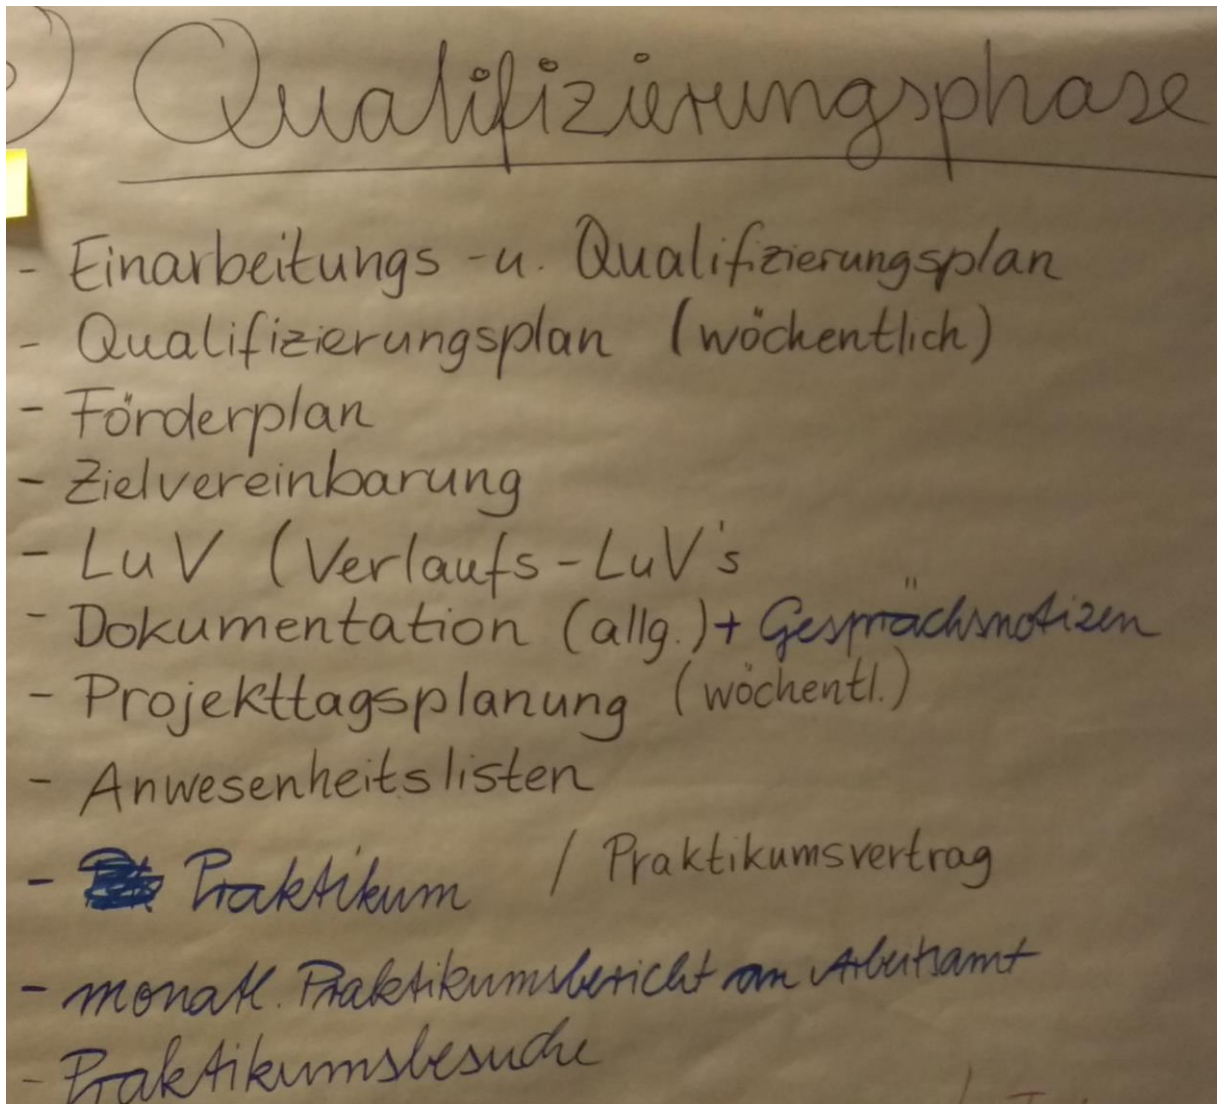 Qualifizierungsphase
- Einarbeitungs -u. Qualifizierungsplan
- Qualifizierungsplan (wöchentlich)
- Förderplan
- Zielvereinbarung
- LuV (Verlaufs-LuV's
- Dokumentation (allg.) + Gesprächsnotizen
- Projekttagsplanung (wöchentl.)
- Anwesenheitslisten
- Praktikum / Praktikumsvertrag
- monatl. Praktikumsbericht an Arbeitsamt
- Praktikumsbesuche